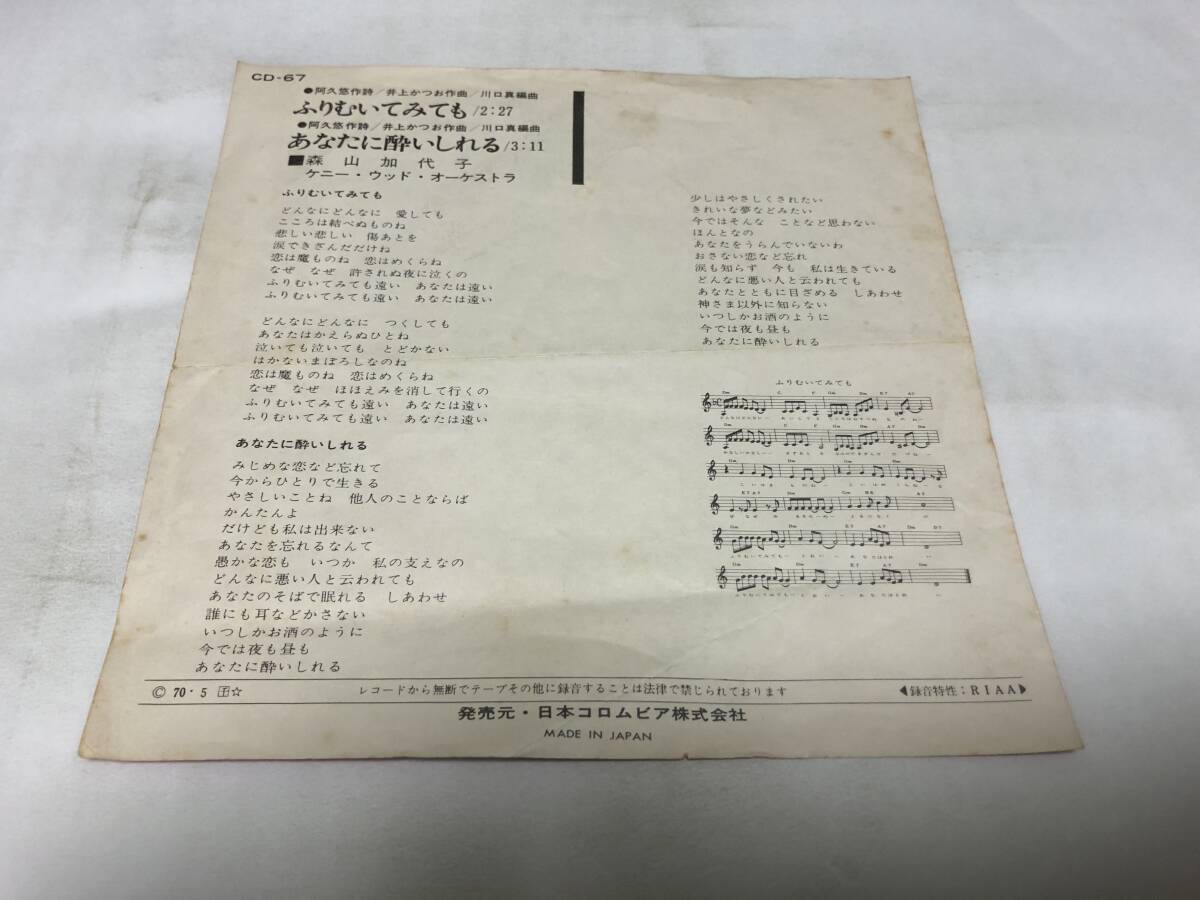 CD-67
●阿久悠作詩/井上かつお作曲/川口真編曲
ふりむいてみても/2:27
●阿久悠作詩/井上かつお作曲/川口真編曲
あなたに酔いしれる/3:11
■森山加代子
ケニー・ウッド・オーケストラ
ふりむいてみても
どんなにどんなに 愛しても
こころは結べぬものね
悲しい悲しい 傷あとを
涙できざんだだけね
恋は魔ものね 恋はめくらね
なぜ なぜ 許されぬ夜に泣くの
ふりむいてみても遠い あなたは遠い
ふりむいてみても遠い あなたは遠い
どんなにどんなに つくしても
あなたはかえらぬひとね
泣いても泣いても とどかない
はかないまぼろしなのね
恋は魔ものね 恋はめくらね
なぜ なぜ ほほえみを消して行くの
ふりむいてみても遠い あなたは遠い
ふりむいてみても遠い あなたは遠い
あなたに酔いしれる
みじめな恋など忘れて
今からひとりで生きる
やさしいことね 他人のことならば
かんたんよ
だけども私は出来ない
あなたを忘れるなんて
愚かな恋も いつか 私の支えなの
どんなに悪い人と云われても
あなたのそばで眠れる しあわせ
誰にも耳などかさない
いつしかお酒のように
今では夜も昼も
あなたに酔いしれる
少しはやさしくされたい
きれいな夢などみたい
今ではそんな ことなど思わない
ほんとなの
あなたをうらんでいないわ
おさない恋など忘れ
涙も知らず 今も 私は生きている
どんなに悪い人と云われても
あなたとともに目ざめる しあわせ
神さま以外に知らない
いつしかお酒のように
今では夜も昼も
あなたに酔いしれる
ふりむいてみても
© 70・5 ☆
レコードから無断でテープその他に録音することは法律で禁じられております
◀録音特性:RIAA▶
発売元・日本コロムビア株式会社
MADE IN JAPAN